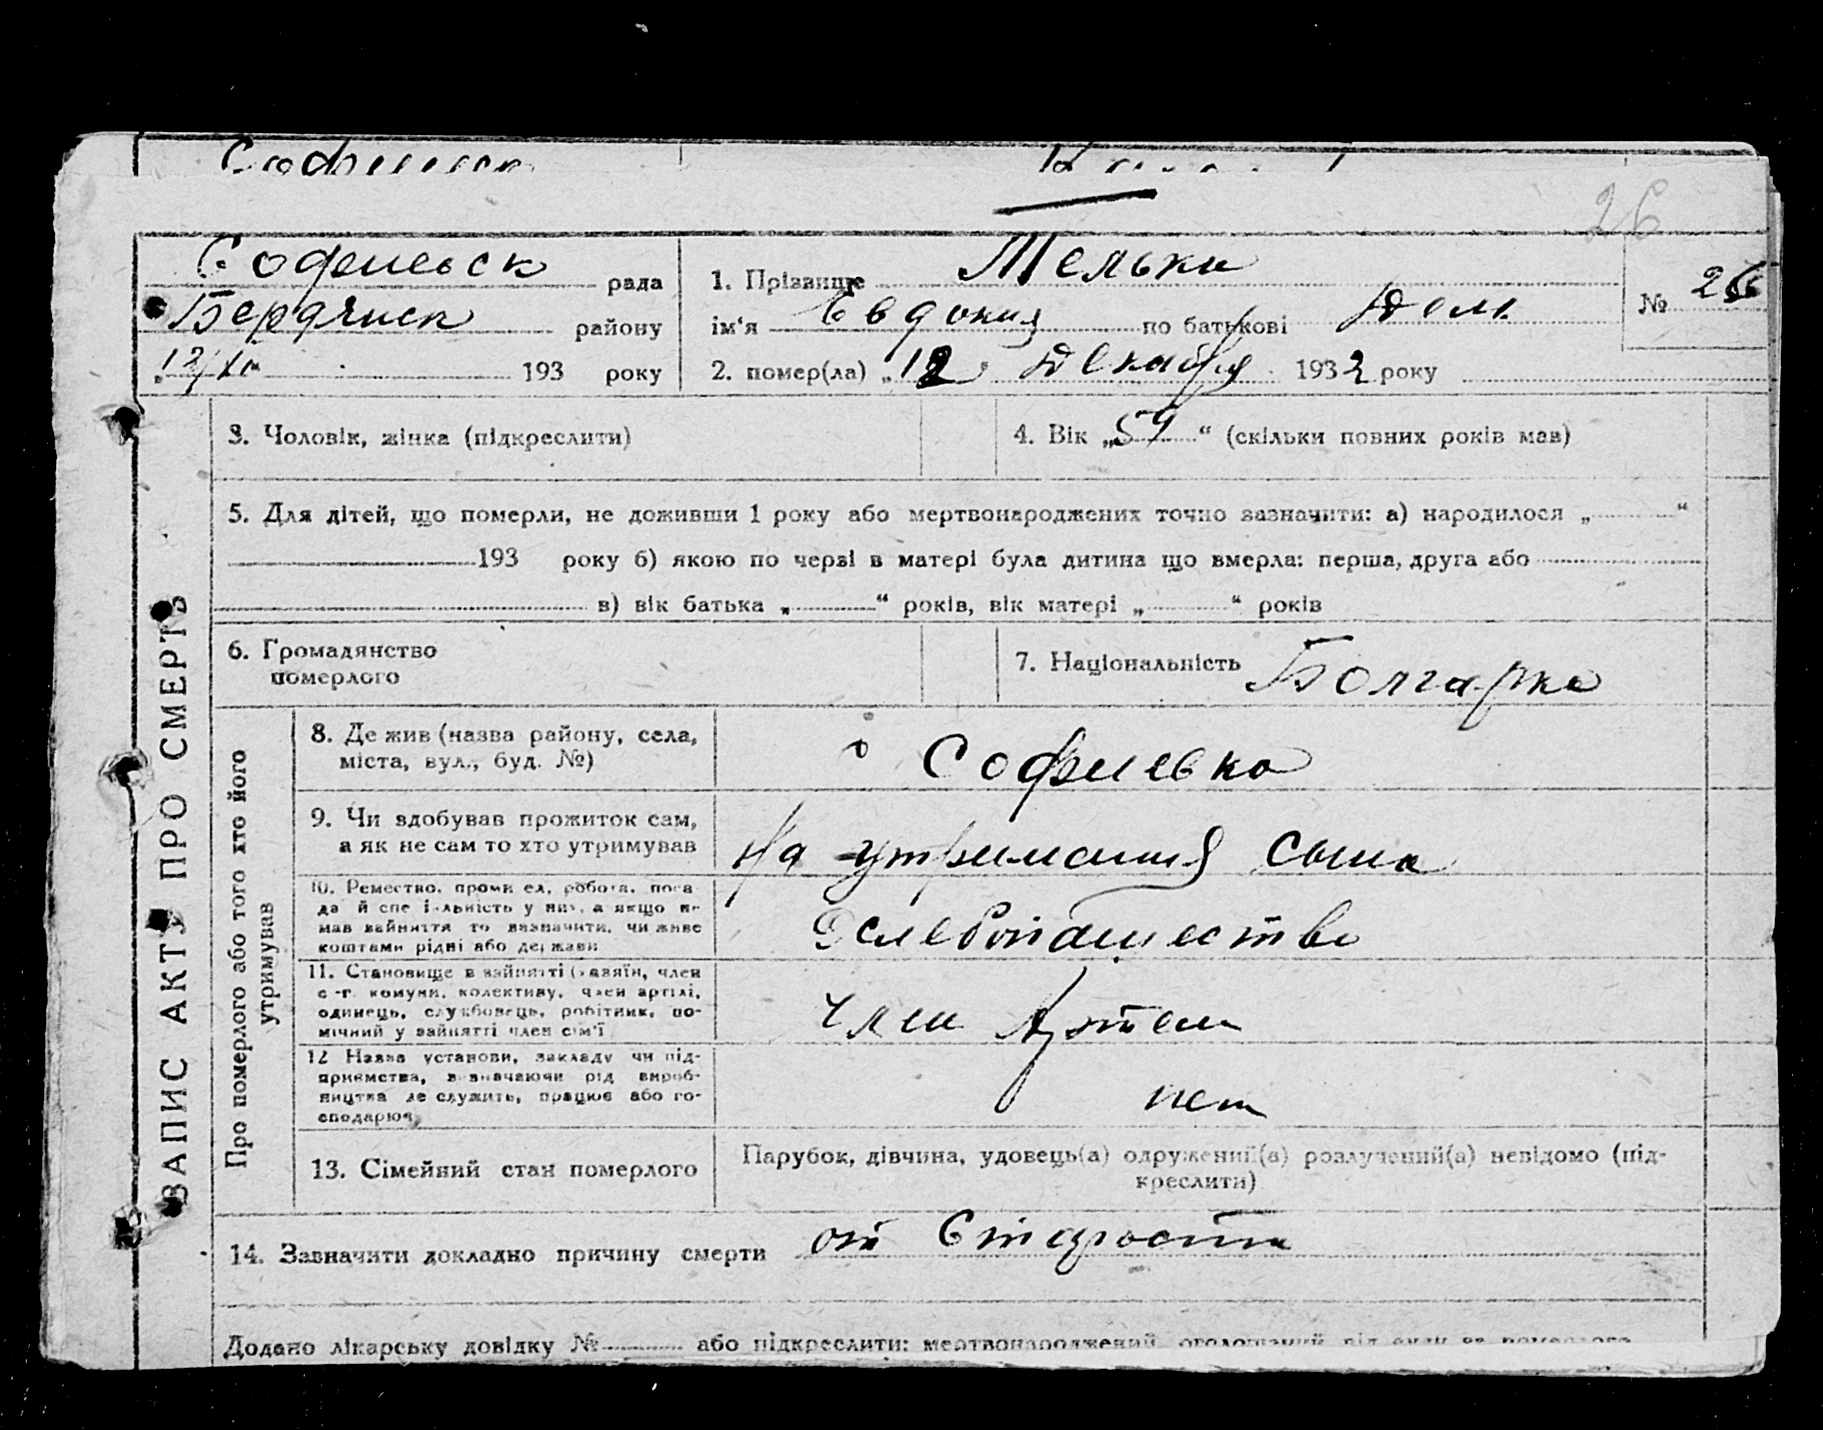 26
Софиевск рада
Бердянск району
"12/XII 193 року
1. Прізвище Телька
ім'я Евдокия по батькові Дем.
2. помер(ла) „12" Декабря 1932 року
№ 26
ЗАПИС АКТУ ПРО СМЕРТЬ
3. Чоловік, жінка (підкреслити)
4. Вік „59“ (скільки повних років мав)
5. Для дітей, що померли, не доживши 1 року або мертвонароджених точно зазначити: а) народилося „ “
193 року б) якою по черзі в матері була дитина що вмерла: перша, друга або
в) вік батька „ “ років, вік матері „ “ років
6. Громадянство
померлого
7. Національність Болгарка
Про померлого або того хто його
утримував
8. Де жив (назва району, села,
міста, вул., буд. №)
Софиевка
9. Чи здобував прожиток сам,
а як не сам то хто утримував
На утримания сына
10. Ремество, промисел, робота, поса-
да й спеціяльність у них, а якщо не
мав зайняття то визначити, чи живе
коштами рідні або держави
11. Становище в зайнятті (хазяїн, член
с.-г. комуни, колективу, член артілі,
одинець, службовець, робітник, по-
мічний у зайнятті член сім'ї
член Артели
12 Назва установи, закладу чи під-
приємства, визначаючи рід вироб-
ництва де служить, працює або го-
сподарює
нет
13. Сімейний стан померлого
Парубок, дівчина, удовець(а) одружений(а) розлучений(а) невідомо (під-
креслити)
14. Зазначити докладно причину смерти от Старости
Додано лікарську довідку № або підкреслити: мертвонароджений